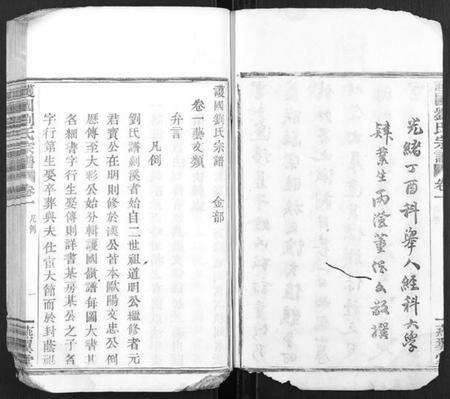 光緒丁酉科舉人經科大學
肄業生雨澄董

護國劉氏宗譜
卷一
護國劉氏宗譜 金部
卷一藝文類
弁言
凡例
劉氏譜剡溪者始自二世祖道明公繼修者元
君實公在明則修於漢公皆本歐陽文忠公例
歷傳至大彩公始分輯護國倣譜每國大書其
名細書字行生娶傳則詳書某房某公之子名
字行第生娶卒葬與夫仕宦大節而於封蔭祖
護國劉氏宗譜
卷一
凡例
一